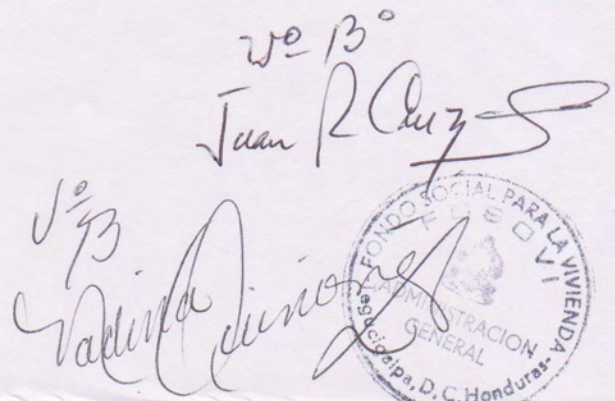 Vº Bº
Juan R Cruz
Vº B
Quiñonez
FONDO SOCIAL PARA LA VIVIENDA
FOSOVI
ADMINISTRACION
GENERAL
Tegucigalpa, D. C. Honduras-